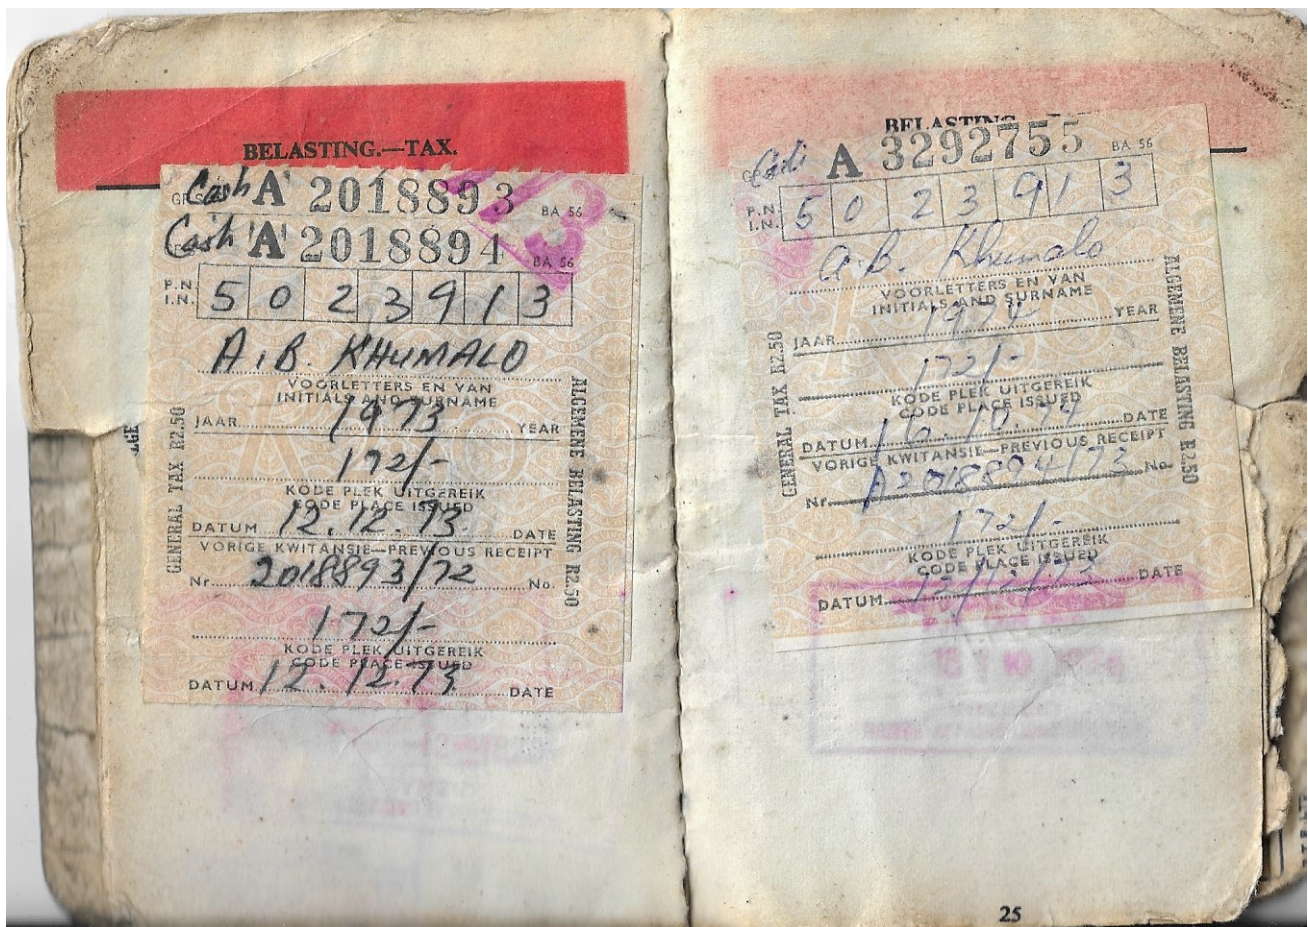 BELASTING.—TAX.
Cash A 2018893 BA 56
Cash A 2018894 BA 56
P.N.
I.N. 5 0 2 3 9 1 3
A.B. KHUMALO
VOORLETTERS EN VAN
INITIALS AND SURNAME
JAAR 1973 YEAR
172/-
KODE PLEK UITGEREIK
CODE PLACE ISSUED
DATUM 12.12.73 DATE
VORIGE KWITANSIE—PREVIOUS RECEIPT
Nr. 2018893/72 No.
172/-
KODE PLEK UITGEREIK
CODE PLACE ISSUED
DATUM 12.12.73 DATE
GENERAL TAX R2.50
ALGEMENE BELASTING R2.50
BELASTING
Cash A 3292755 BA 56
P.N.
I.N. 5 0 2 3 9 1 3
A.B. Khumalo
VOORLETTERS EN VAN
INITIALS AND SURNAME
JAAR 1974 YEAR
172/-
KODE PLEK UITGEREIK
CODE PLACE ISSUED
DATUM 16.10.74 DATE
VORIGE KWITANSIE—PREVIOUS RECEIPT
Nr. A2018894/73 No.
172/-
KODE PLEK UITGEREIK
CODE PLACE ISSUED
DATUM 12/12/73 DATE
GENERAL TAX R2.50
ALGEMENE BELASTING R2.50
25